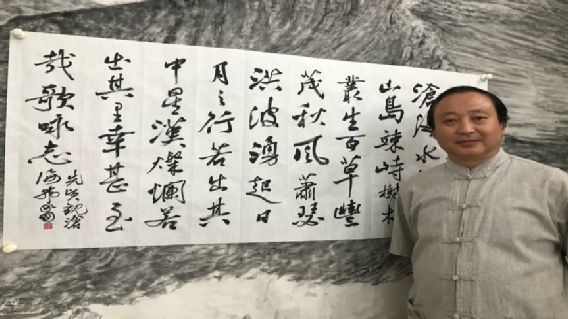 滄海水
山島竦峙樹木
叢生百草豐
茂秋風蕭瑟
洪波湧起日
月之行若出其
中星漢燦爛若
出其里幸甚至
哉歌咏志